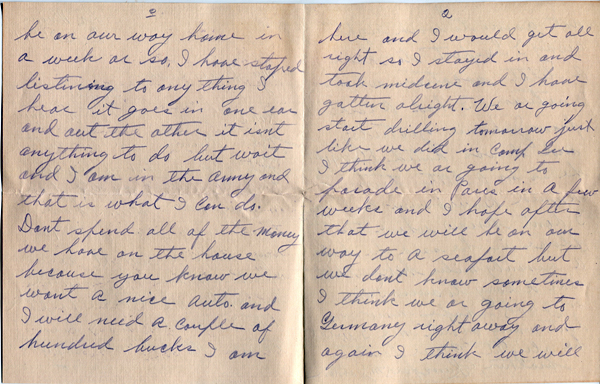 be on our way home in
a week or so, I have stoped
listining to any thing I
hear it goes in one ear
and out the other it isnt
anything to do but wait
and I am in the army and
that is what I can do.
Dont spend all of the money
we have on the house
because you know we
want a nice auto. and
I will need a couple of
hundred bucks I am
2
here and I would get all
right so I stayed in and
took midicene and I have
gotten alright. We ar going
start drilling tomorrow just
like we did in Camp Lee
I think we ar going to
parade in Paris in a few
weeks and I hope after
that we will be on our
way to a seaport but
we dont know sometimes
I think we ar going to
Germany right away and
again I think we will